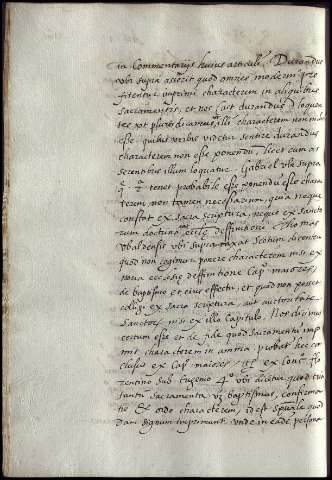 in Commentarijs huius articuli. Durandus
ubi supra asserit quod omnes moderni pro
fitentur imprimi characterem in aliquibus
sacramentis, et nos (ait durandus) loquen
tes ut plures dicamus illū characterem
esse. quibus verbis videtur sentire durandus
characterem non esse ponendū, licet cum as
serentibus illum loquatur. Gabriel ubi supra
q. 2. tenet probabile esse ponendū esse chara
terem, non tamen necessarium, quia neque
constat ex sacra scriptura, neque ex sancto
rum doctrina, ecclē deffinitione. Thomas
Ubaldensis ubi supra taxat Scotum dicentem
quod non cogimur ponere characterem nisi ex
nova ecclesiae deffinitione Cap. maiores
de baptismo et eius effectu. et quod non potest
colligi ex sacra scriptura aut auctoritate
Sanctorū nisi ex illo Capitulo. Nos dicimus
certum esse et de fide quod Sacramenta impri
munt characterem in anima. probat hec co
clusio ex Cap. maiores et ex Conc. flo
rentino sub Eugenio 4º ubi dicitur quod tria
tantū Sacramenta vz baptismus, confirma
tio et ordo characterem, id est spūale quod
dam signum imprimunt. unde in eadē persona